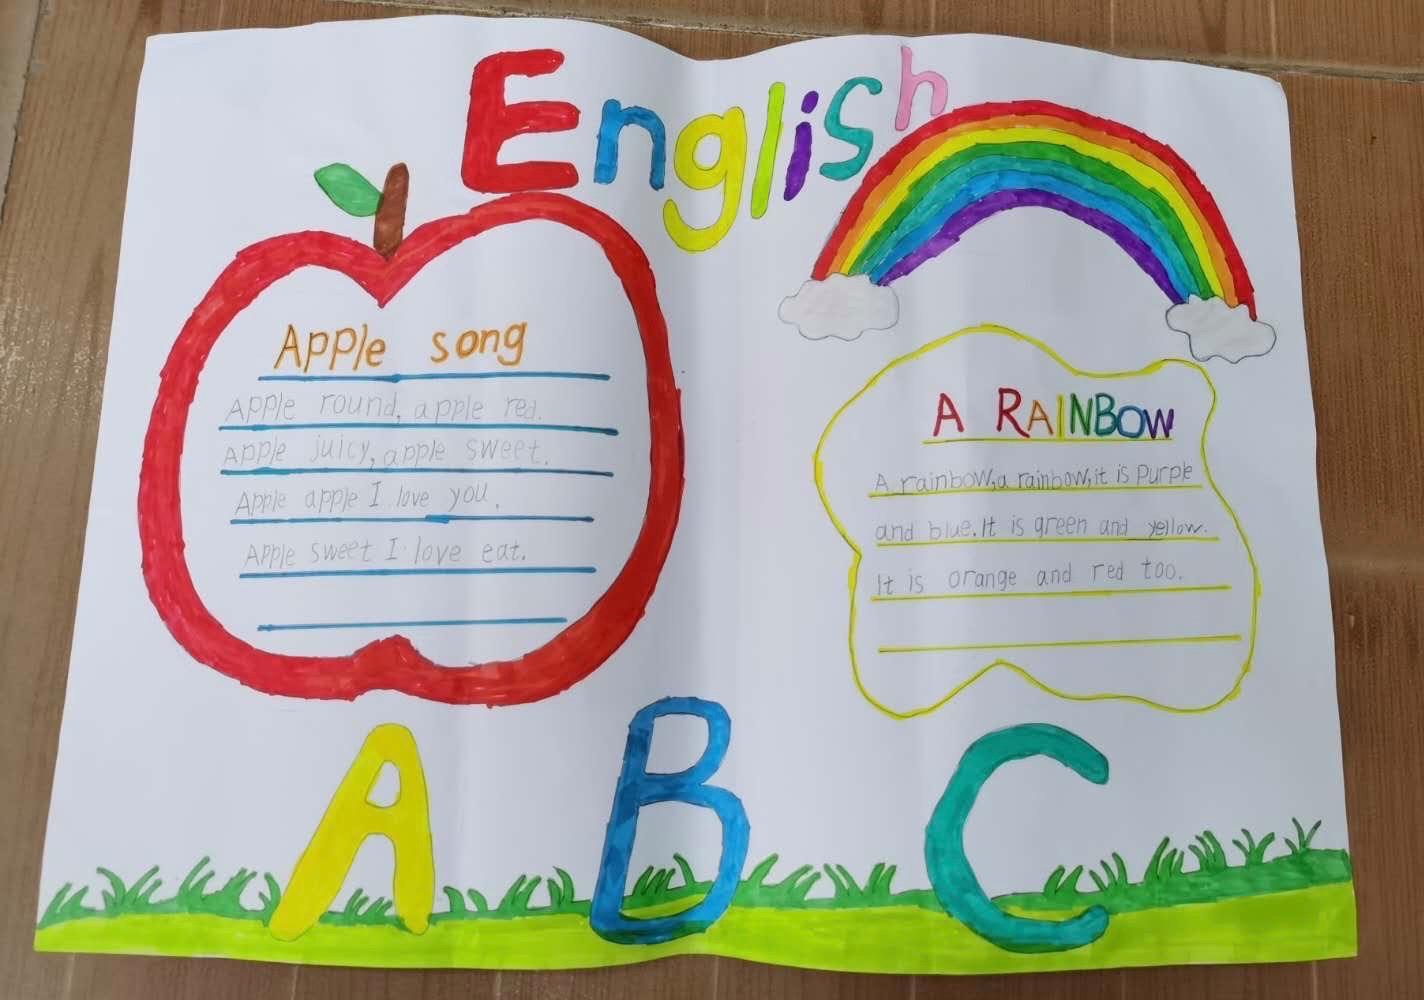 English
Apple song
Apple round, apple red.
Apple juicy, apple sweet.
Apple apple I love you.
Apple sweet I love eat.
A RAINBOW
A rainbow, a rainbow, it is Purple
and blue. It is green and yellow.
It is orange and red too.
A B C